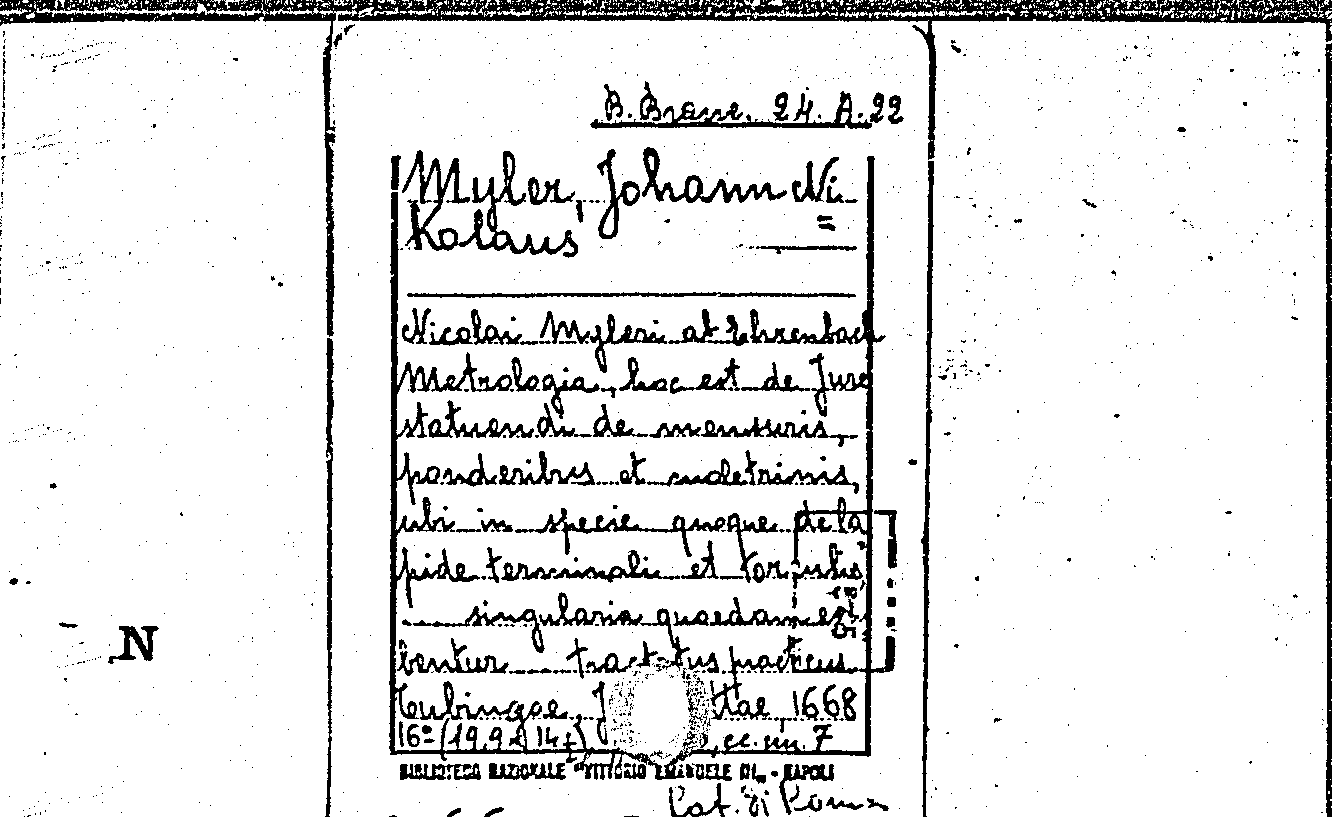 B. Branc. 24. A. 22
Myler, Johann Ni=
kolaus
Nicolai Myleri ab Ehrenbach
Metrologia, hoc est de Jure
statuendi de mensuris,
ponderibus et
ubi in specie quoque de la
pide terminali et
.... singularia quaedam
bentur ... tractatus
Tubingae, 1668
16º (19,9 x 14 cc. nn. 7
BIBLIOTECA NAZIONALE "VITTORIO EMANUELE III" - NAPOLI
N
Cat. di Roma